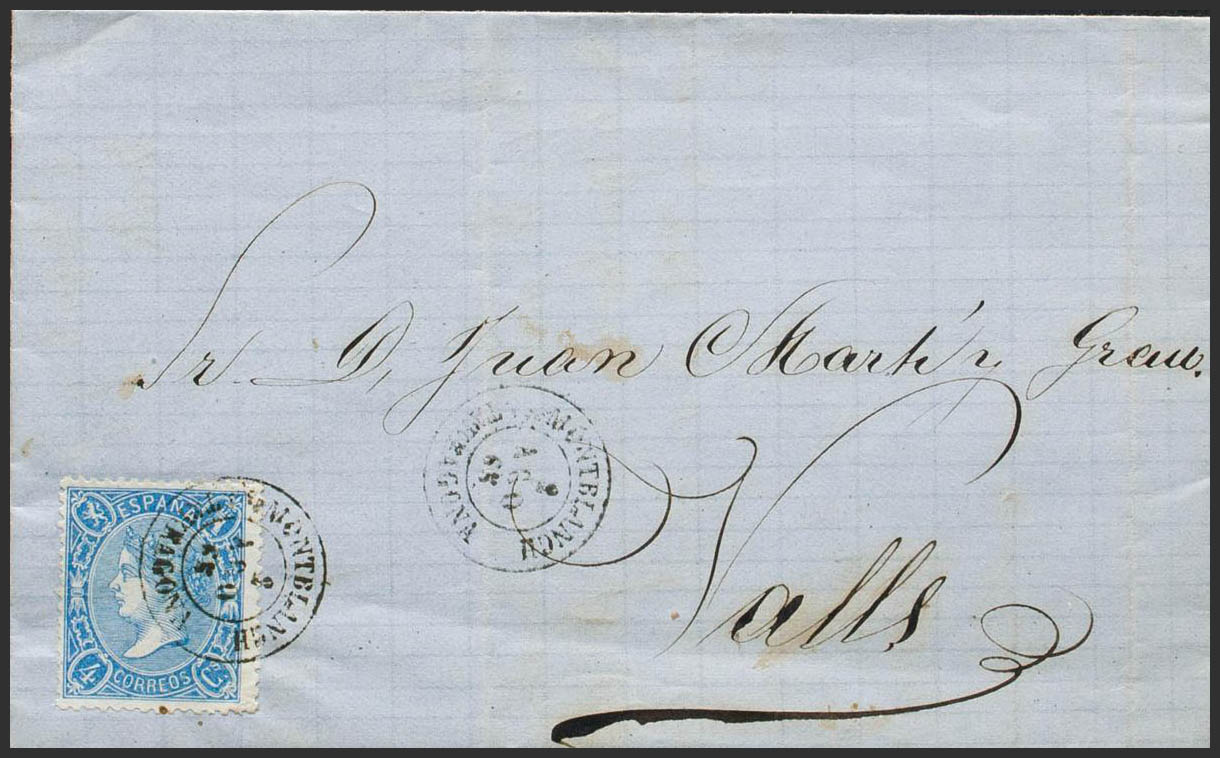 Sr. D. Juan Martí y Grau.
Valls
MONTBLANCH
TARRAGONA
ESPAÑA
MONTBLANCH
TARRAGONA
4 Cs
CORREOS